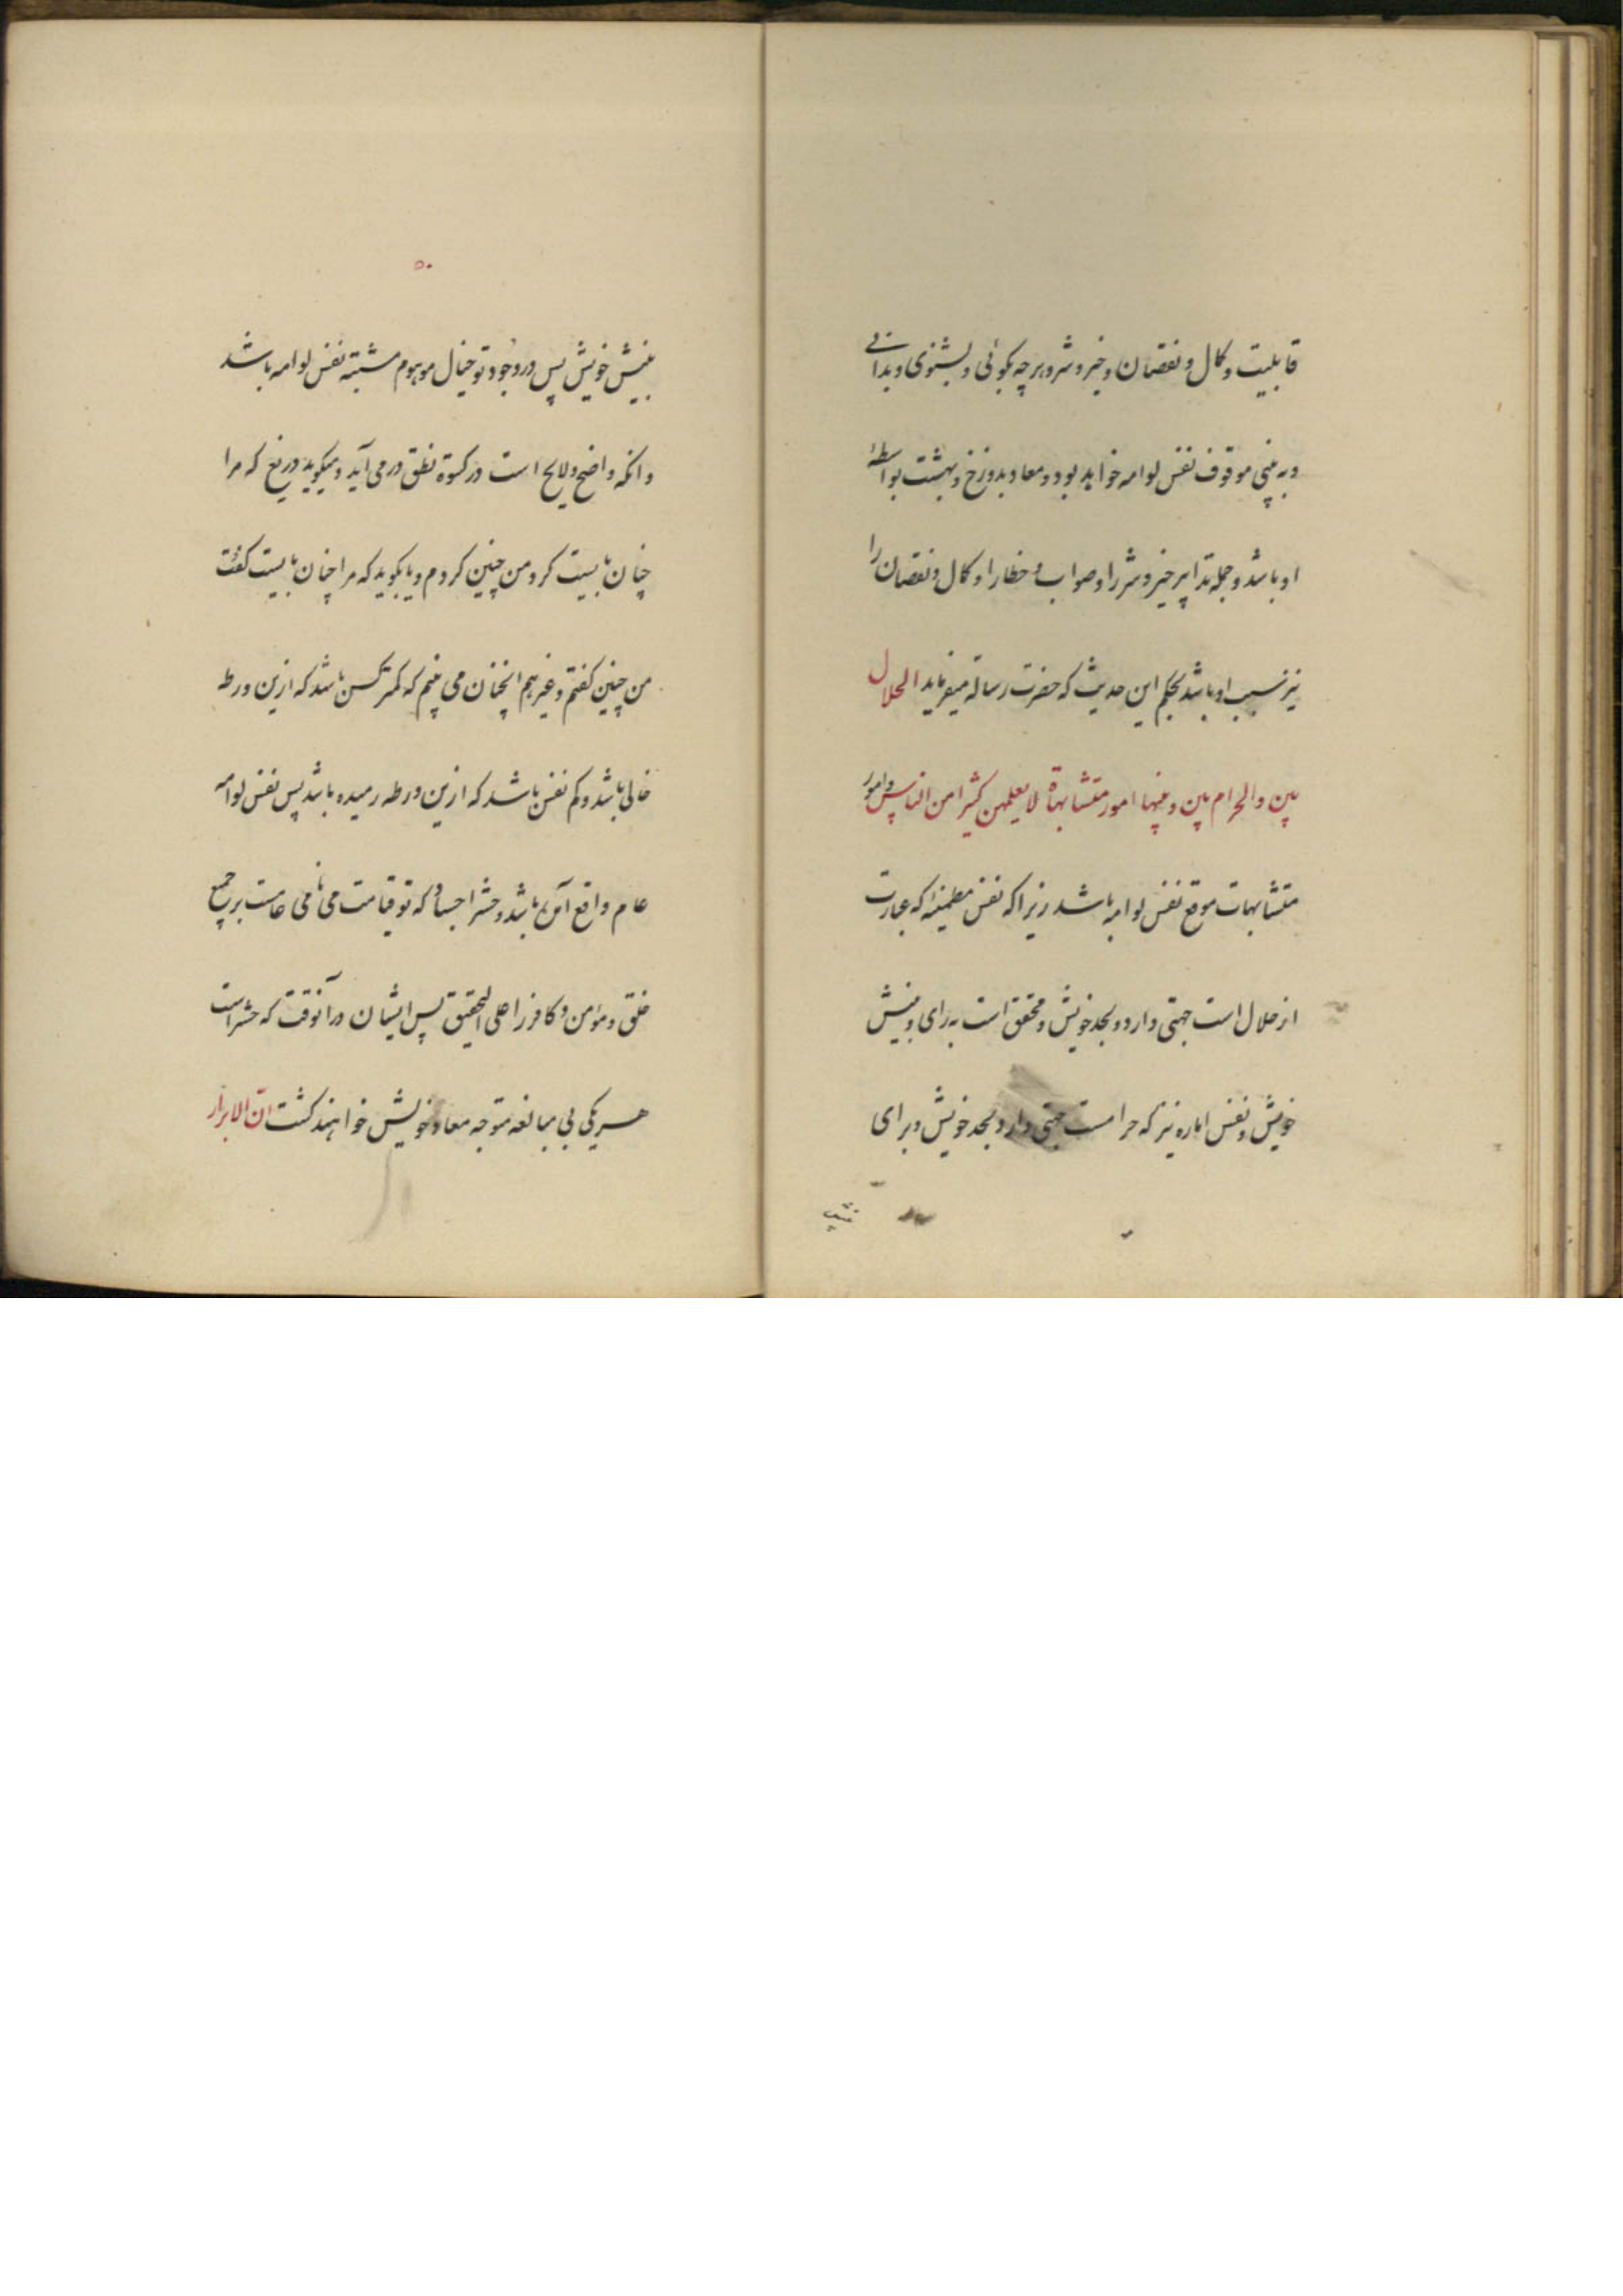 قابلیت و کمال و نقصان و خیر و شر و هرچه بکوئی و بشنوی و بدانے
و به بینی موقوف نفس لوامه خواهد بود و معاد بدوزخ و بهشت بواسطهٔ
او باشد و جمله تدابیر خیر و شر را و صواب و خطا را و کمال و نقصان را
نیز نسبب او باشد بحکم این حدیث که حضرت رسالة میفرماید الحلال
بین والحرام بین و بینها امور متشابهاة لا یعلمهن کثیرا من الناس و امور
متشابهات موقع نفس لوامه باشد زیرا که نفس مطمئنه که عبارت
از حلال است جهتی دارد و بحد خویش و محقق است به رای و بینش
خویش و نفس اماره نیز که حرامست جهتی دارد و بحد خویش و برای
بینش
۵۰
بینش خویش پس در وجود تو خیال موهوم مشتبه نفس لوامه باشد
و انکه واضح و لایح است در کسوة نطق در می آید و میکوید دریغ که مرا
چنان بایست کرد من چنین کردم و یا بکوید که مرا چنان بایست کفت
من چنین کفتم و غیرهم انچنان می بینم که کمتر کسی باشد که ازین ورطه
خالی باشد و کم نفس باشد که ازین ورطه رمیده باشد پس نفس لوامه
عام واقع آمن باشد و حشر اجساد که تو قیامت می نامی عامست بر جمیع
خلق و مؤمن و کافر را علی التحقیق پس ایشان در آنوقت که حشر است
هر یکی بی مبالغه متوجه معاد خویش خواهند کشت انّ الابرار